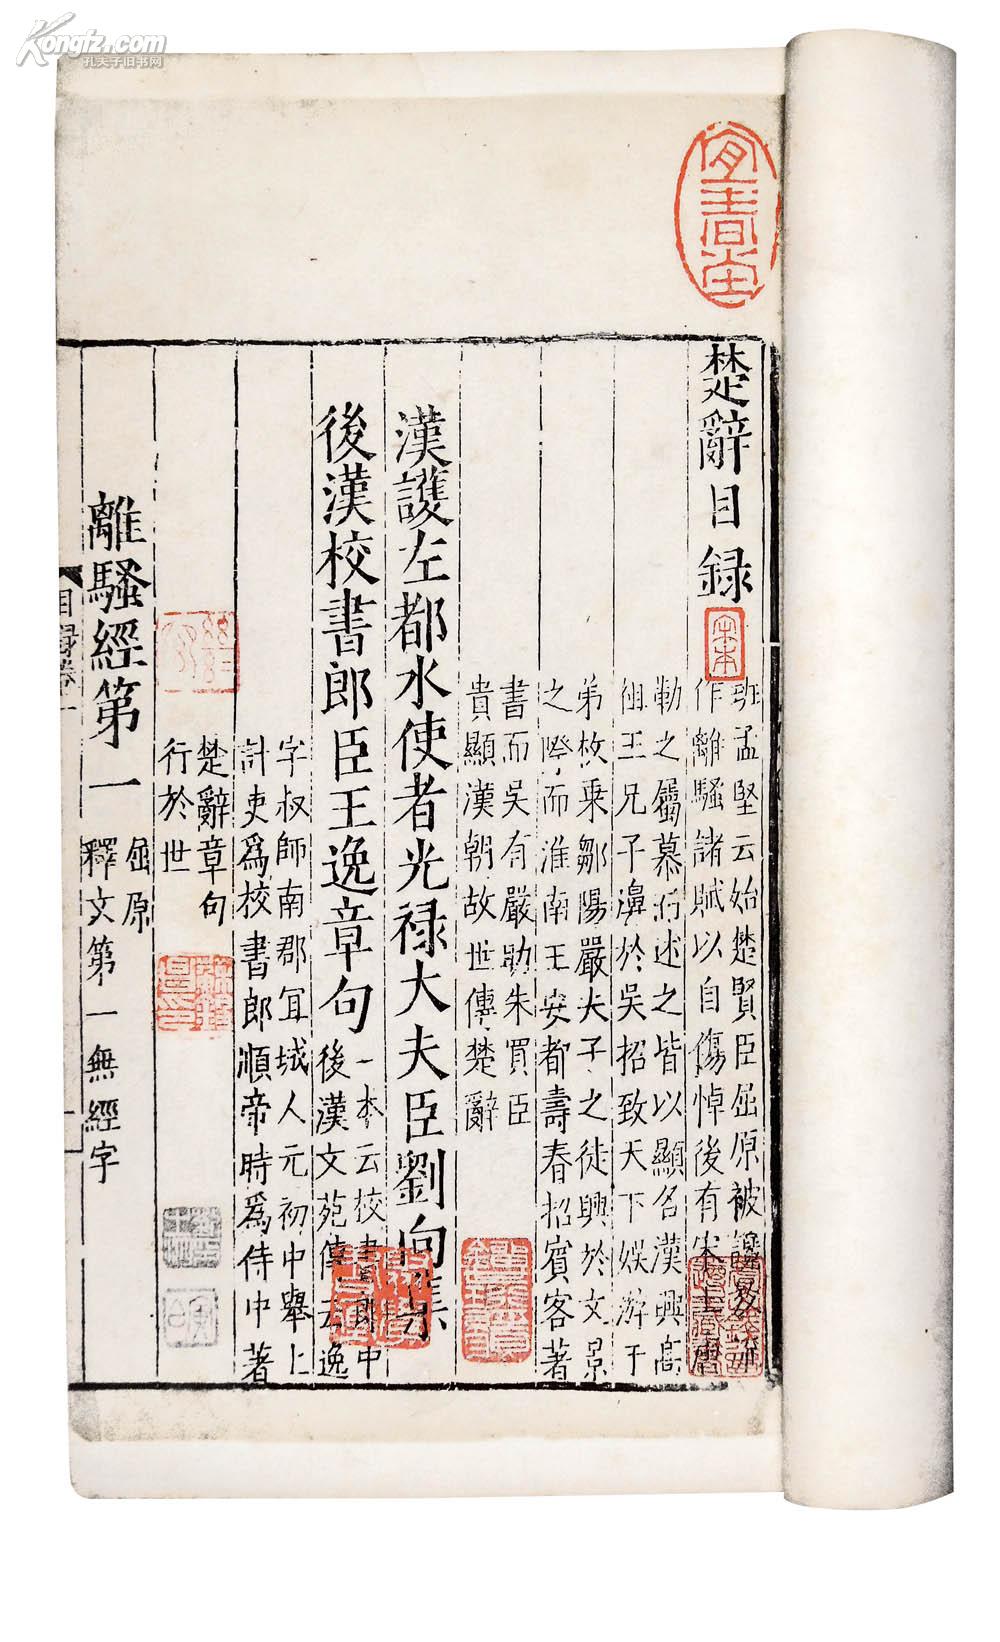 Kongfz.com
孔夫子旧书网
宜春堂
楚辭目録
宋本
班孟堅云始楚賢臣屈原被讒
作離騷諸賦以自傷悼後有宋玉唐
勒之屬慕而述之皆以顯名漢興高
祖王兄子濞於吳招致天下娛游子
弟枚乗鄒陽嚴夫子之徒興於文景
之際而淮南王安都壽春招賓客著
書而吳有嚴助朱買臣
貴顯漢朝故世傳楚辭
漢護左都水使者光禄大夫臣劉向集
後漢校書郎臣王逸章句
一本云校書郎中
後漢文苑傳云逸
字叔師南郡冝城人元初中舉上
計吏爲校書郎順帝時爲侍中著
楚辭章句
行於世
離騷經第一
屈原
釋文第一無經字
目録卷一